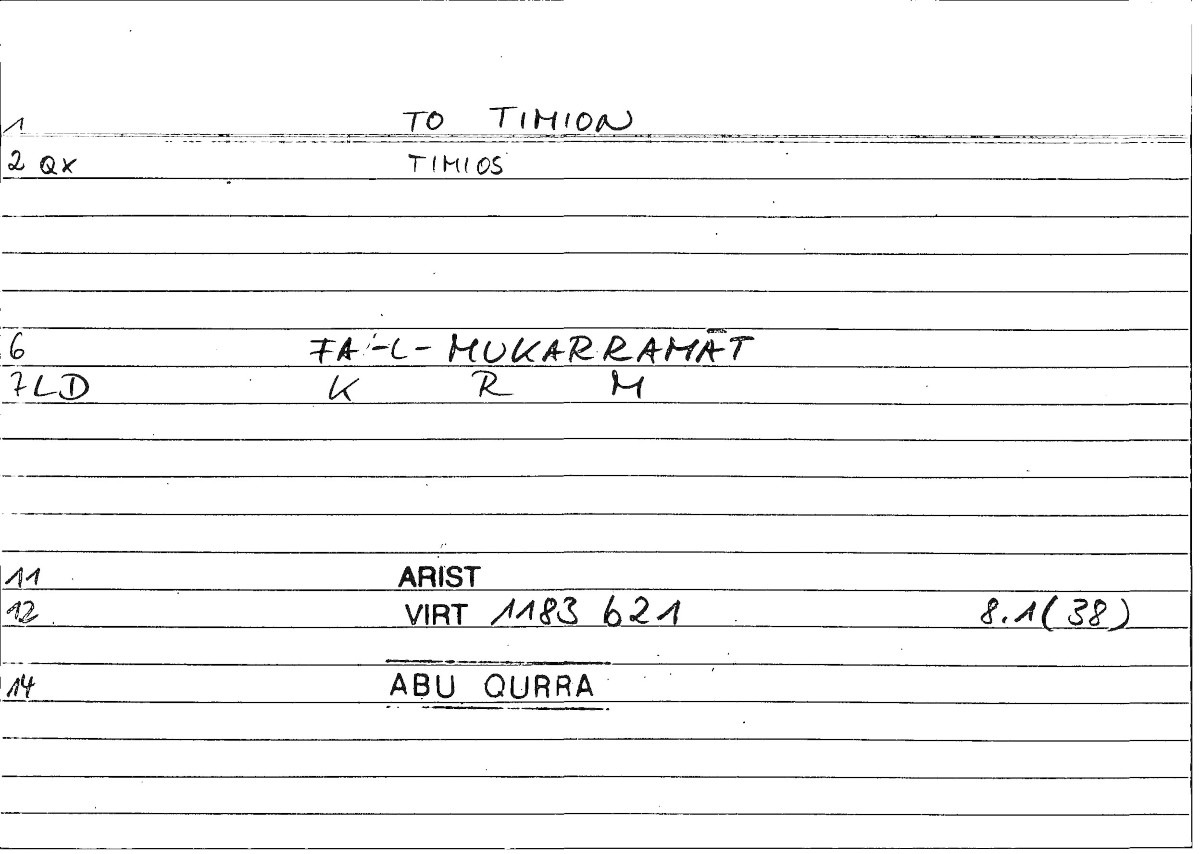 1 TO TIMION
2 QX TIMIOS
6 FA-L-MUKARRAMĀT
7 LD K R M
11 ARIST
12 VIRT 1183 621 8.1(38)
14 ABU QURRA